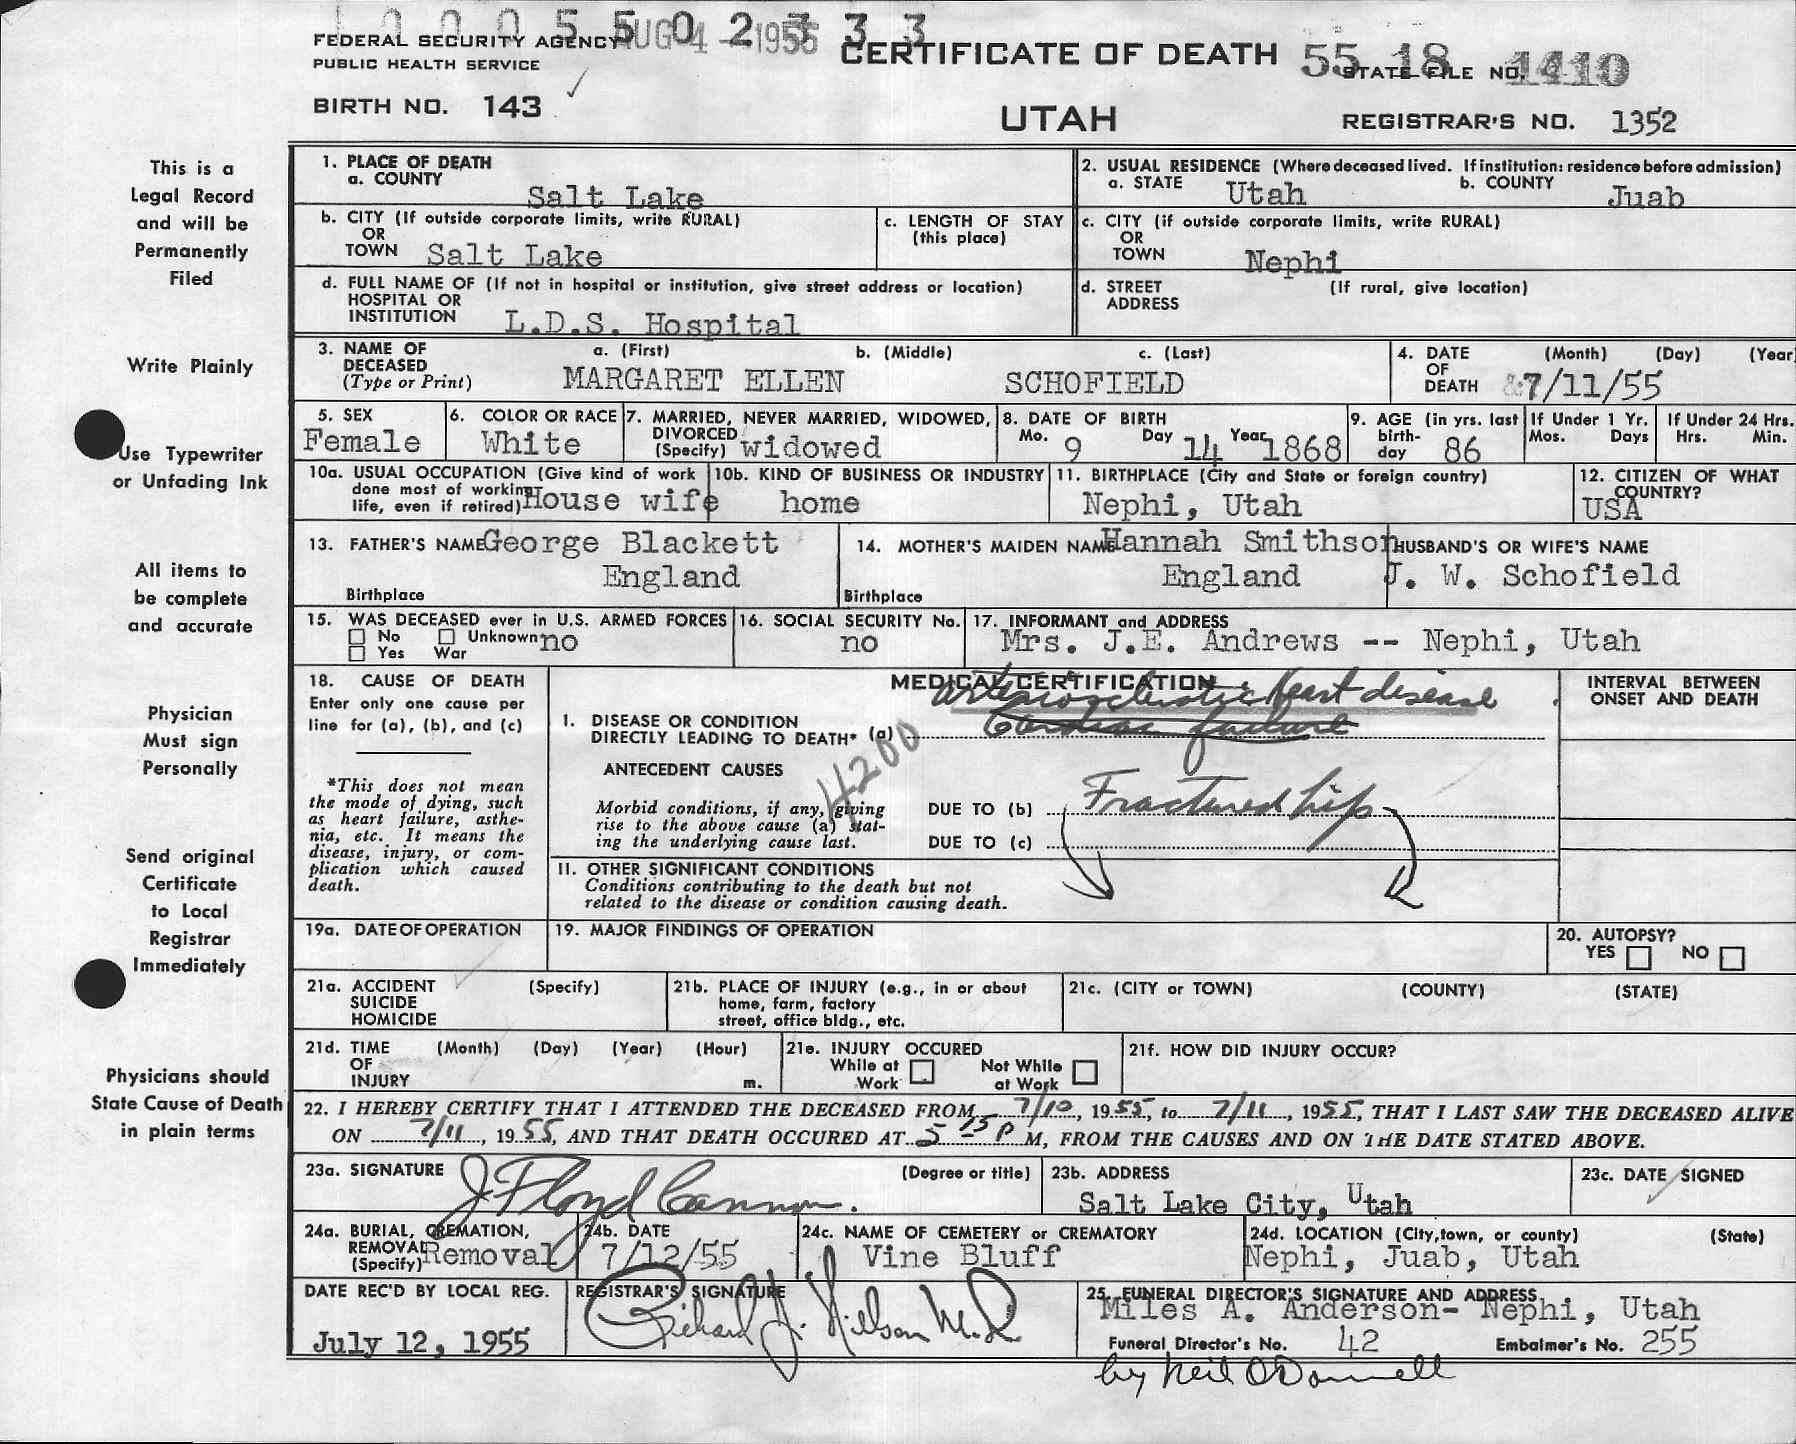 1 0 0 0 5 5 0 2 3 3 3
AUG 4 1955
FEDERAL SECURITY AGENCY
PUBLIC HEALTH SERVICE
BIRTH NO. 143
CERTIFICATE OF DEATH
UTAH
55 18 1410
STATE FILE NO.
REGISTRAR'S NO. 1352
This is a
Legal Record
and will be
Permanently
Filed
Write Plainly
Use Typewriter
or Unfading Ink
All items to
be complete
and accurate
Physician
Must sign
Personally
Send original
Certificate
to Local
Registrar
Immediately
Physicians should
State Cause of Death
in plain terms
1. PLACE OF DEATH
a. COUNTY
Salt Lake
2. USUAL RESIDENCE (Where deceased lived. If institution: residence before admission)
a. STATE Utah b. COUNTY Juab
b. CITY (If outside corporate limits, write RURAL)
OR
TOWN Salt Lake
c. LENGTH OF STAY
(this place)
c. CITY (if outside corporate limits, write RURAL)
OR
TOWN Nephi
d. FULL NAME OF (If not in hospital or institution, give street address or location)
HOSPITAL OR
INSTITUTION L.D.S. Hospital
d. STREET (If rural, give location)
ADDRESS
3. NAME OF
DECEASED
(Type or Print)
a. (First) b. (Middle) c. (Last)
MARGARET ELLEN SCHOFIELD
4. DATE (Month) (Day) (Year
OF
DEATH 7/11/55
5. SEX
Female
6. COLOR OR RACE
White
7. MARRIED, NEVER MARRIED, WIDOWED,
DIVORCED
(Specify) widowed
8. DATE OF BIRTH
Mo. 9 Day 14 Year 1868
9. AGE (in yrs. last
birth-
day 86
If Under 1 Yr.
Mos. Days
If Under 24 Hrs.
Hrs. Min.
10a. USUAL OCCUPATION (Give kind of work
done most of working
life, even if retired) House wife
10b. KIND OF BUSINESS OR INDUSTRY
home
11. BIRTHPLACE (City and State or foreign country)
Nephi, Utah
12. CITIZEN OF WHAT
COUNTRY?
USA
13. FATHER'S NAME George Blackett
England
Birthplace
14. MOTHER'S MAIDEN NAME Hannah Smithson
England
Birthplace
HUSBAND'S OR WIFE'S NAME
J. W. Schofield
15. WAS DECEASED ever in U.S. ARMED FORCES
No Unknown no
Yes War
16. SOCIAL SECURITY No.
no
17. INFORMANT and ADDRESS
Mrs. J.E. Andrews -- Nephi, Utah
18. CAUSE OF DEATH
Enter only one cause per
line for (a), (b), and (c)
*This does not mean
the mode of dying, such
as heart failure, asthe-
nia, etc. It means the
disease, injury, or com-
plication which caused
death.
MEDICAL CERTIFICATION
arteriosclerotic heart disease
1. DISEASE OR CONDITION
DIRECTLY LEADING TO DEATH* (a) Cardiac failure
4200
ANTECEDENT CAUSES
Morbid conditions, if any, giving
rise to the above cause (a) stat-
ing the underlying cause last.
DUE TO (b) Fractured hip
DUE TO (c)
11. OTHER SIGNIFICANT CONDITIONS
Conditions contributing to the death but not
related to the disease or condition causing death.
INTERVAL BETWEEN
ONSET AND DEATH
19a. DATE OF OPERATION
19. MAJOR FINDINGS OF OPERATION
20. AUTOPSY?
YES NO
21a. ACCIDENT (Specify)
SUICIDE
HOMICIDE
21b. PLACE OF INJURY (e.g., in or about
home, farm, factory
street, office bldg., etc.
21c. (CITY or TOWN) (COUNTY) (STATE)
21d. TIME (Month) (Day) (Year) (Hour)
OF
INJURY m.
21e. INJURY OCCURED
While at Not While
Work at Work
21f. HOW DID INJURY OCCUR?
22. I HEREBY CERTIFY THAT I ATTENDED THE DECEASED FROM 7/10, 1955, to 7/11, 1955, THAT I LAST SAW THE DECEASED ALIVE
ON 7/11, 1955, AND THAT DEATH OCCURED AT 5 15 P M, FROM THE CAUSES AND ON THE DATE STATED ABOVE.
23a. SIGNATURE (Degree or title)
J Floyd Cannon.
23b. ADDRESS
Salt Lake City, Utah
23c. DATE SIGNED
24a. BURIAL, CREMATION,
REMOVAL
(Specify) Removal
24b. DATE
7/12/55
24c. NAME OF CEMETERY or CREMATORY
Vine Bluff
24d. LOCATION (City, town, or county) (State)
Nephi, Juab, Utah
DATE REC'D BY LOCAL REG.
July 12, 1955
REGISTRAR'S SIGNATURE
Richard J. Nilson M.D.
25. FUNERAL DIRECTOR'S SIGNATURE AND ADDRESS
Miles A. Anderson- Nephi, Utah
Funeral Director's No. 42 Embalmer's No. 255
by Neil O'Donnell